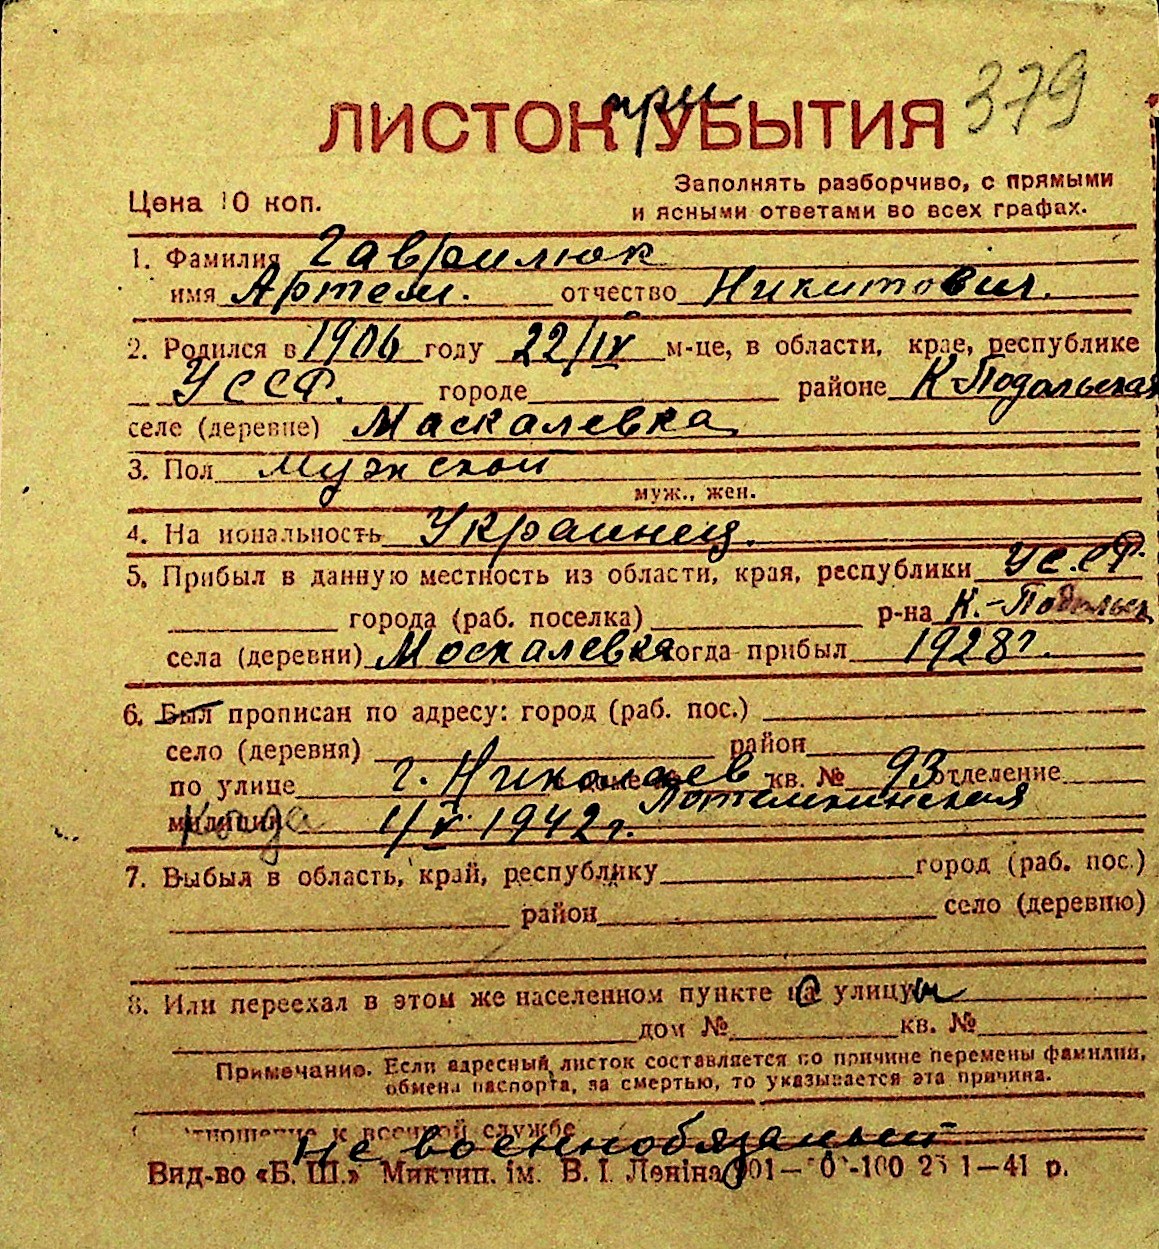 379
при
ЛИСТОК УБЫТИЯ
Цена 10 коп.
Заполнять разборчиво, с прямыми
и ясными ответами во всех графах.
1. Фамилия Гаврилюк
имя Артем. отчество Никитович.
2. Родился в 1906 году 22/IV м-це, в области, крае, республике
УССР. городе районе К-Подольская
селе (деревне) Маскалевка
3. Пол мужской
муж., жен.
4. На иональность Украинец.
5. Прибыл в данную местность из области, края, республики УС.СР.
города (раб. поселка) р-на К.-Подольск
села (деревни) Москалевка когда прибыл 1928г.
6. Был прописан по адресу: город (раб. пос.)
село (деревня) район
по улице г. Николаев кв. № 93 отделение
Потемкинская
милиции Когда 1/V 1942г.
7. Выбыл в область, край, республику город (раб. пос.)
район село (деревню)
8. Или переехал в этом же населенном пункте на улицу
дом № кв. №
Примечание. Если адресный листок составляется по причине перемены фамилии,
обмена паспорта, за смертью, то указывается эта причина.
тношение к военной службе
Не военнобязаный
Вид-во «Б. Ш.» Миктип. ім. В. І. Леніна 1—41 р.